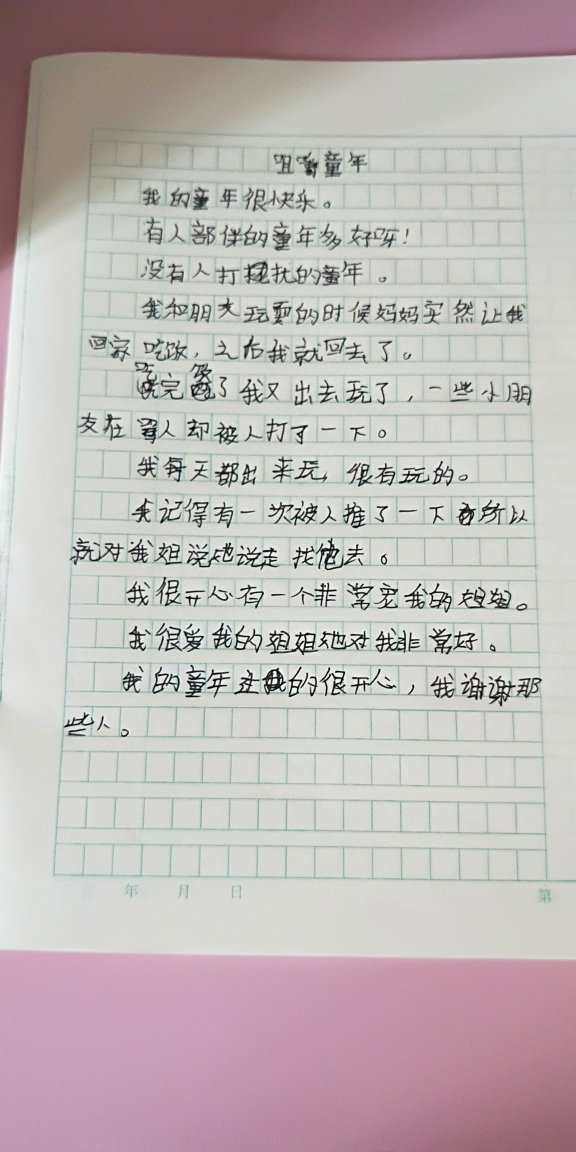 咀嚼童年
我的童年很快乐。
有人部伴的童年多好呀!
没有人打扰的童年。
我和朋友玩耍的时候妈妈突然让我
回家吃饭,之后我就回去了。
吃完饭了我又出去玩了,一些小朋
友在 人却被人打了一下。
我每天都出来玩,很有玩的。
我记得有一次被人推了一下 所以
就对我姐说她说走找他去。
我很开心有一个非常宠我的姐姐。
我很爱我的姐姐她对我非常好。
我的童年过的很开心,我谢谢那
些人。
年 月 日
第